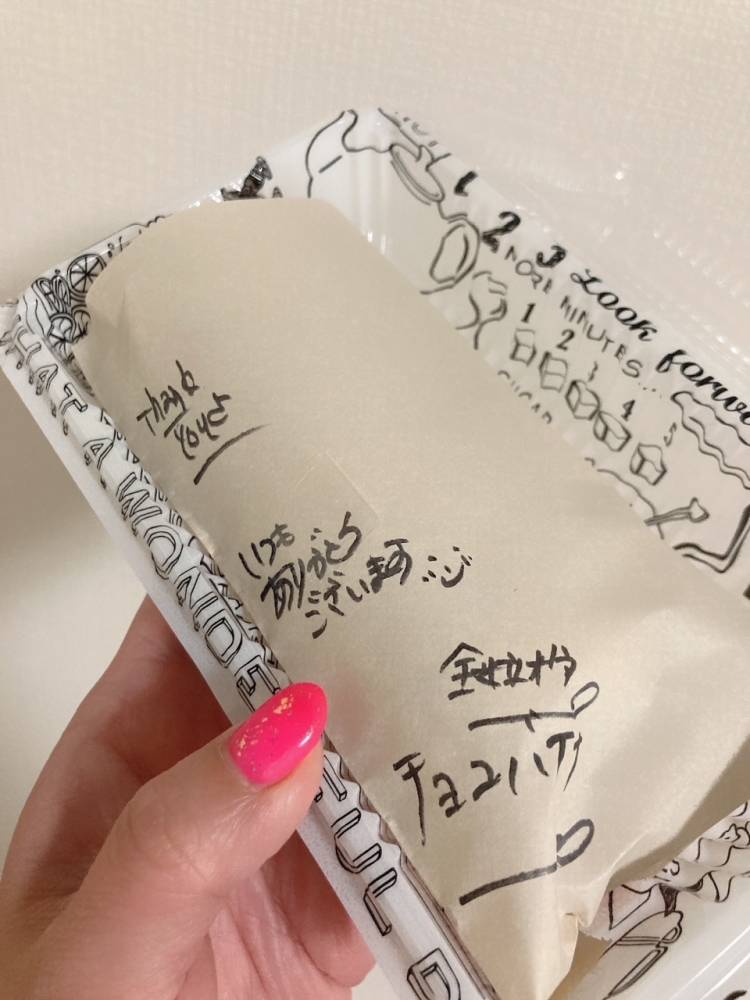 1 2 3 Look forw
MORE MINUTES...
1 2 3 4 5
SUGAR
HAT A WONDE
UL D
Thank
you
いつも
ありがとう
ございます
全粒粉